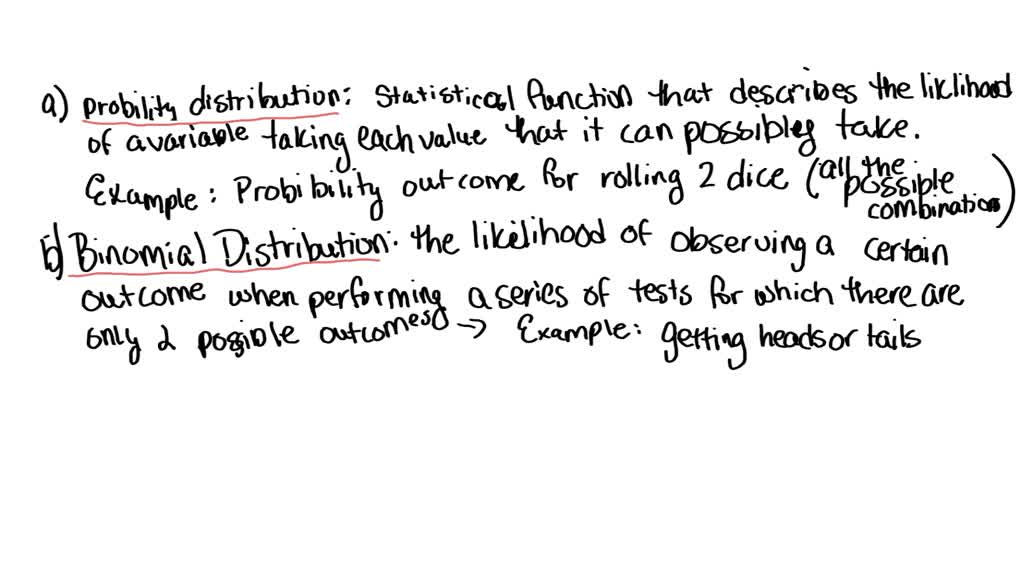 a) Probility distribution: Statistical function that describes the liklihood
of a variable taking each value that it can possibly take.
Example: Probibility outcome for rolling 2 dice (all the possible combinations)
b) Binomial Distribution: the likelihood of observing a certain
outcome when performing a series of tests for which there are
only 2 possible outcomes → Example: getting heads or tails